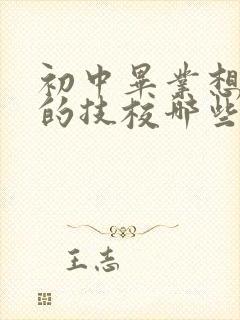 初中毕业想
的技校哪些
王志